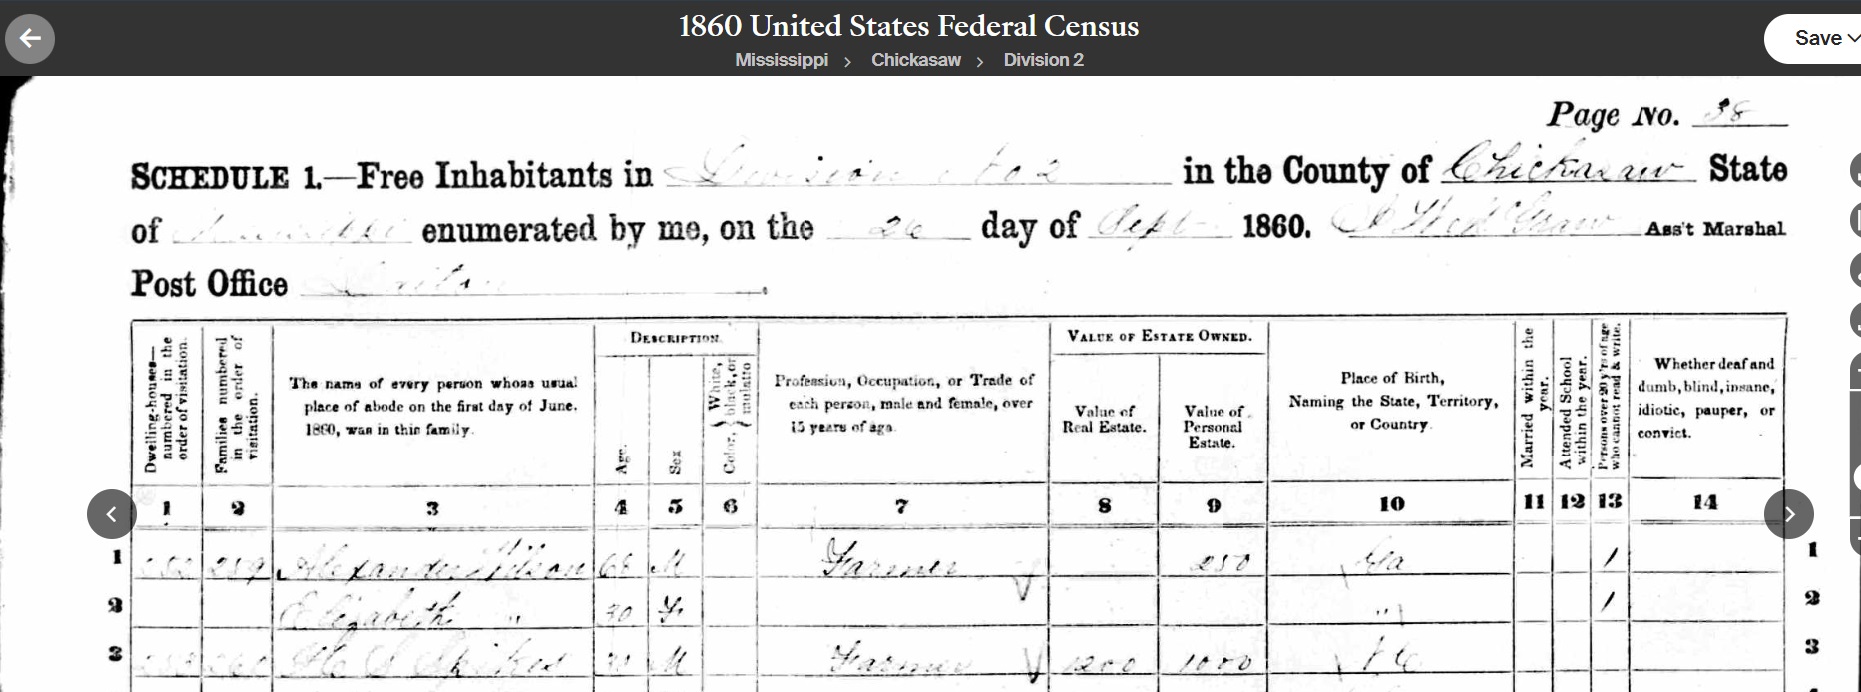 1860 United States Federal Census
Mississippi > Chickasaw > Division 2
Save
Page No. 38
SCHEDULE 1.—Free Inhabitants in Division No 2 in the County of Chickasaw State
of enumerated by me, on the 26 day of Sept 1860. Ass't Marshal
Post Office
Dwelling-houses—numbered in the order of visitation.
Families numbered in the order of visitation.
The name of every person whose usual
place of abode on the first day of June,
1860, was in this family.
DESCRIPTION.
Age.
Sex
Color, { White, black, or mulatto
Profession, Occupation, or Trade of
each person, male and female, over
15 years of age.
VALUE OF ESTATE OWNED.
Value of
Real Estate.
Value of
Personal
Estate.
Place of Birth,
Naming the State, Territory,
or Country.
Married within the year.
Attended School within the year.
Persons over 20 y'rs of age who cannot read & write.
Whether deaf and
dumb, blind, insane,
idiotic, pauper, or
convict.
1 2 3 4 5 6 7 8 9 10 11 12 13 14
1 259 Alexander Wilson M Farmer 250 Ga / 1
2 Elizabeth " 30 F " / 2
3 M Farmer 1200 1000 3